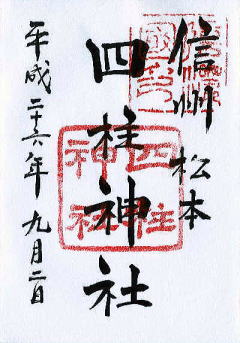 信州 松本
四柱神社
四柱神社
平成二十六年九月二日